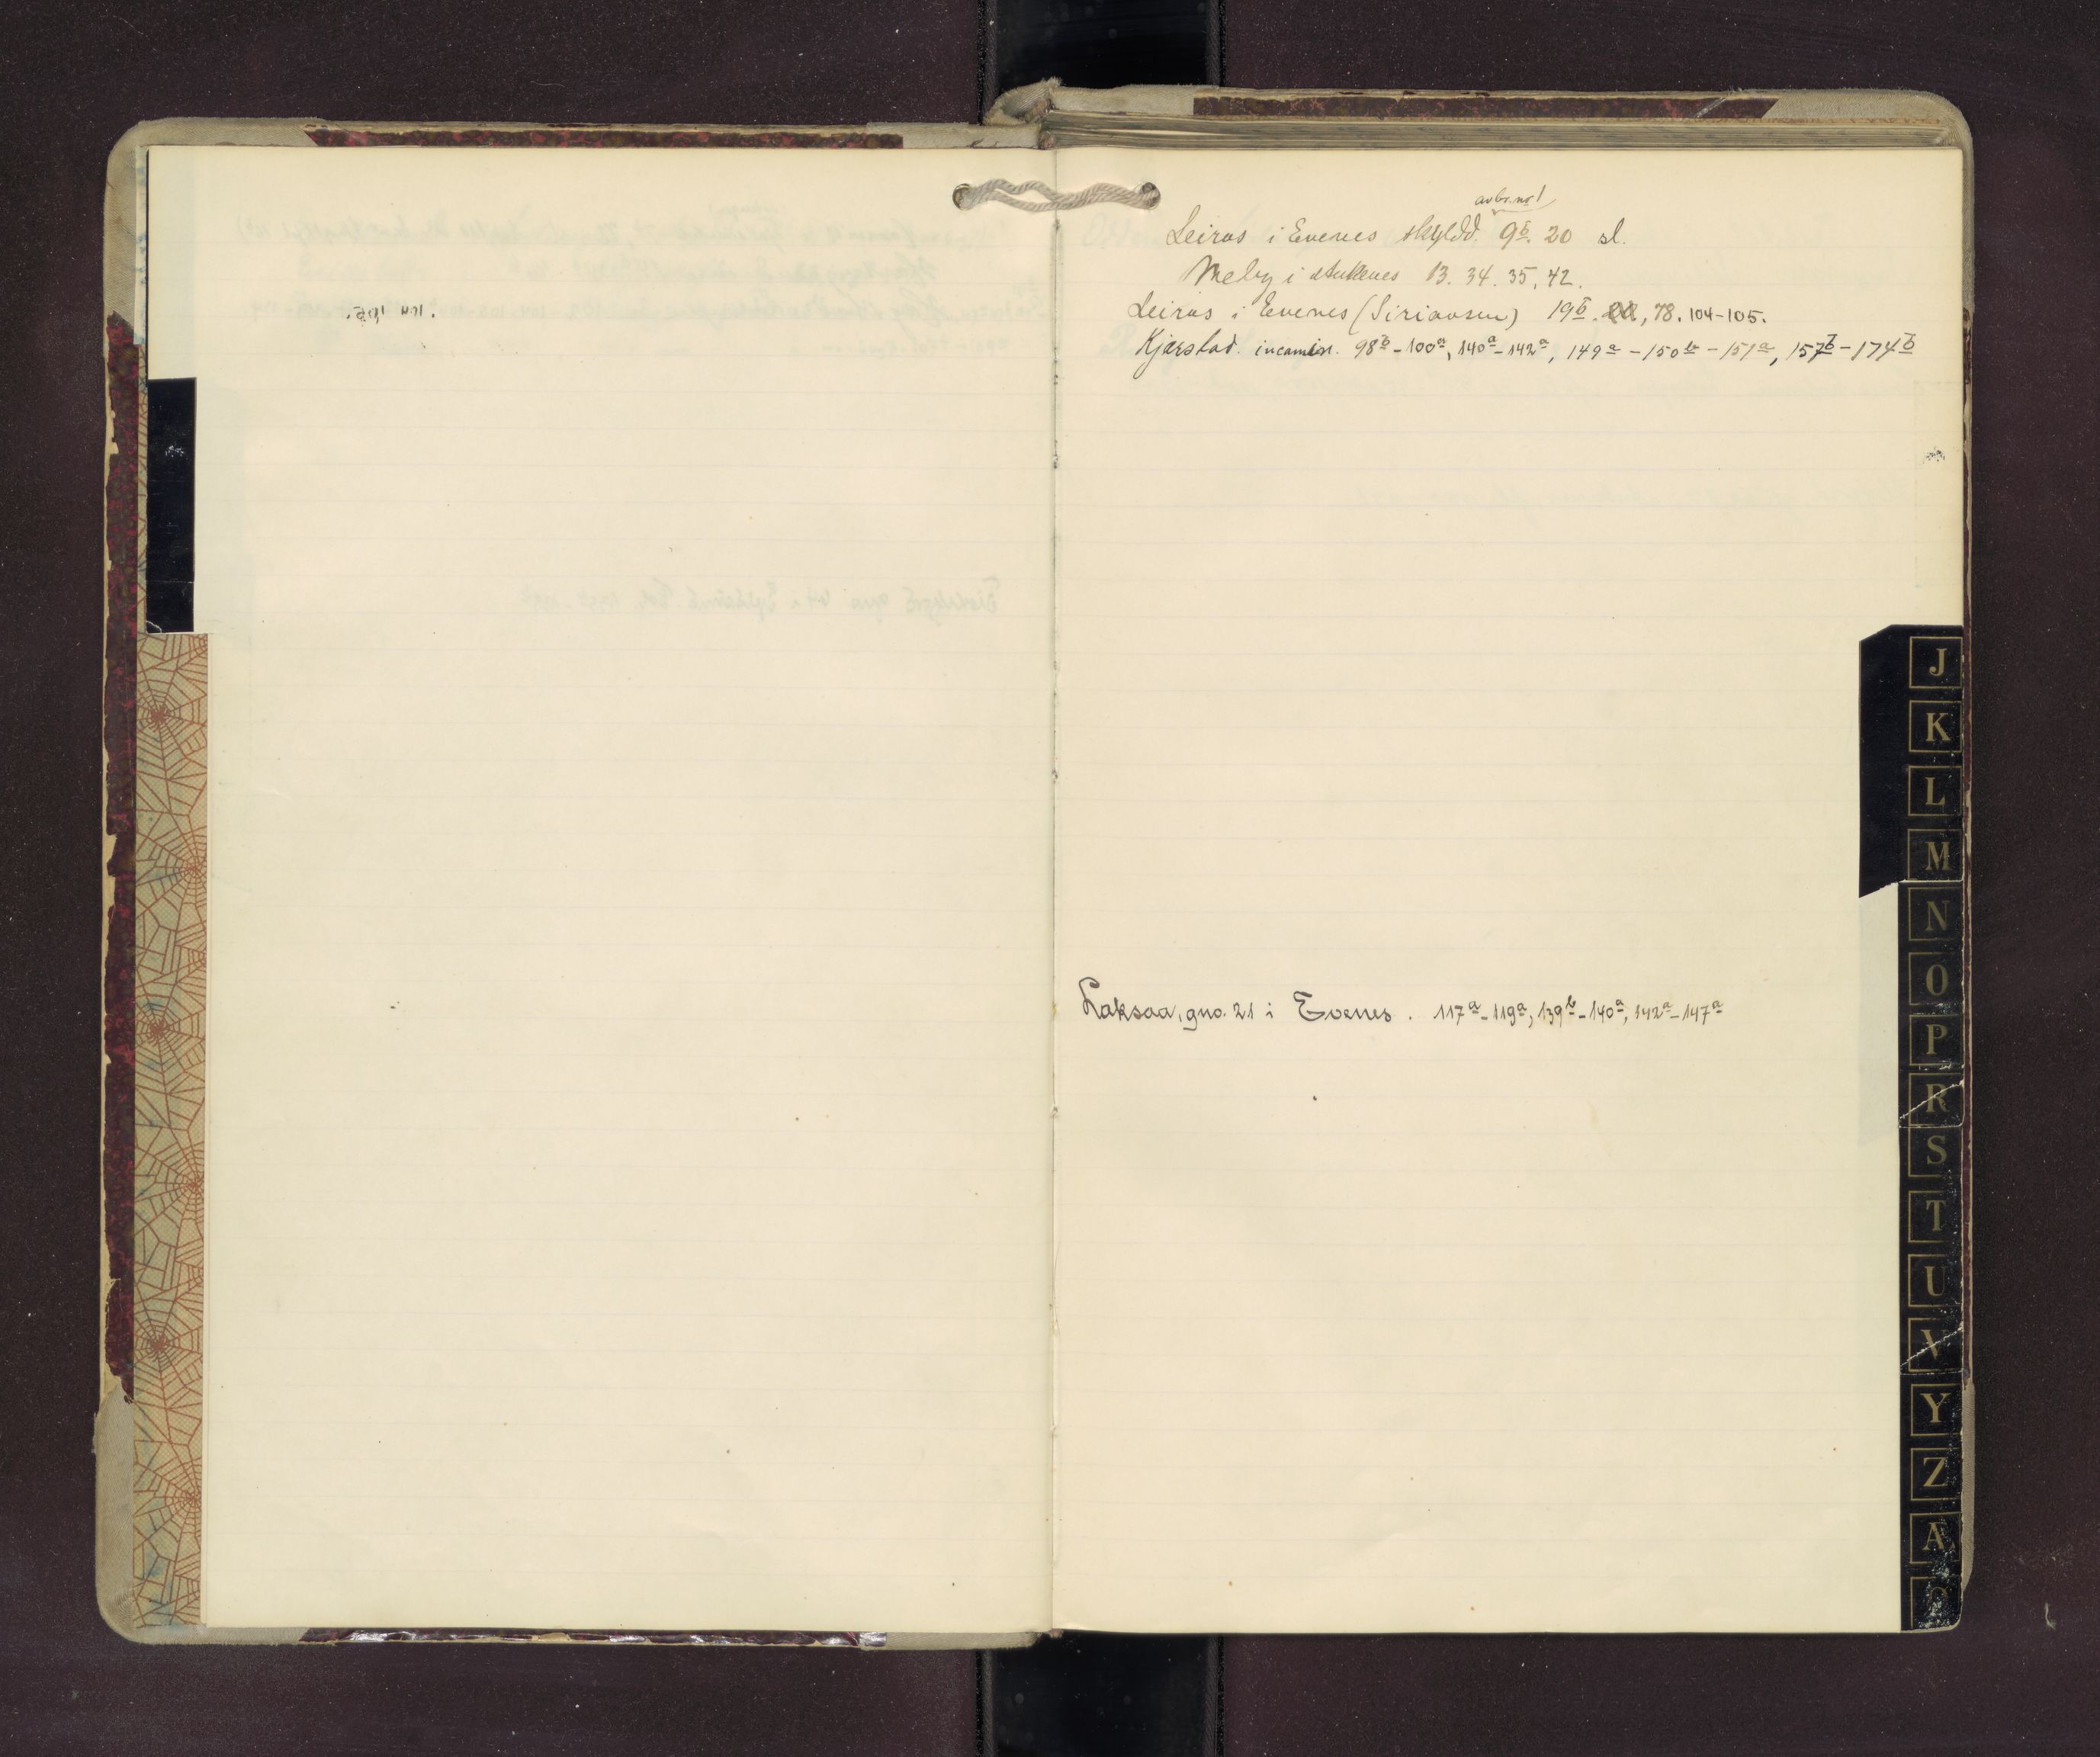 av br.nr 1
Leiros i Evenes skyldd. 9b. 20 sl.
Meby i Ankenes 13. 34. 35, 42.
Leiros i Evenes (Siriaosen) 19b. 78. 104-105.
Kjærstad. 98b-100a, 140a-142a, 149a-150b-151a, 157b-174b
Laksaa, gno. 21 i Evenes. 117a-119a, 139b-140a, 142a-147a
J
K
L
M
N
O
P
R
S
T
U
V
Y
Z
Æ